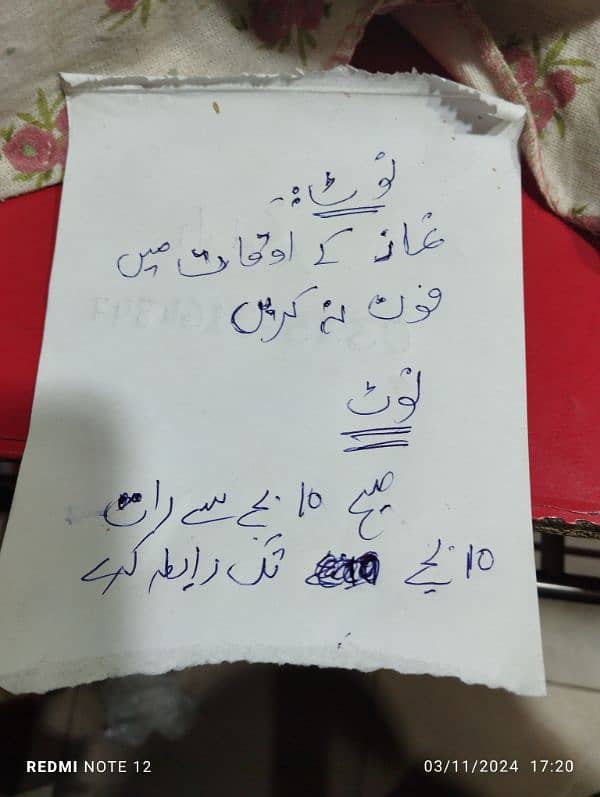 نوٹ:-
نماز کے اوقات میں
فون نہ کریں
نوٹ
صبح 10 بجے سے رات
10 بجے تک رابطہ کرے
REDMI NOTE 12
03/11/2024 17:20